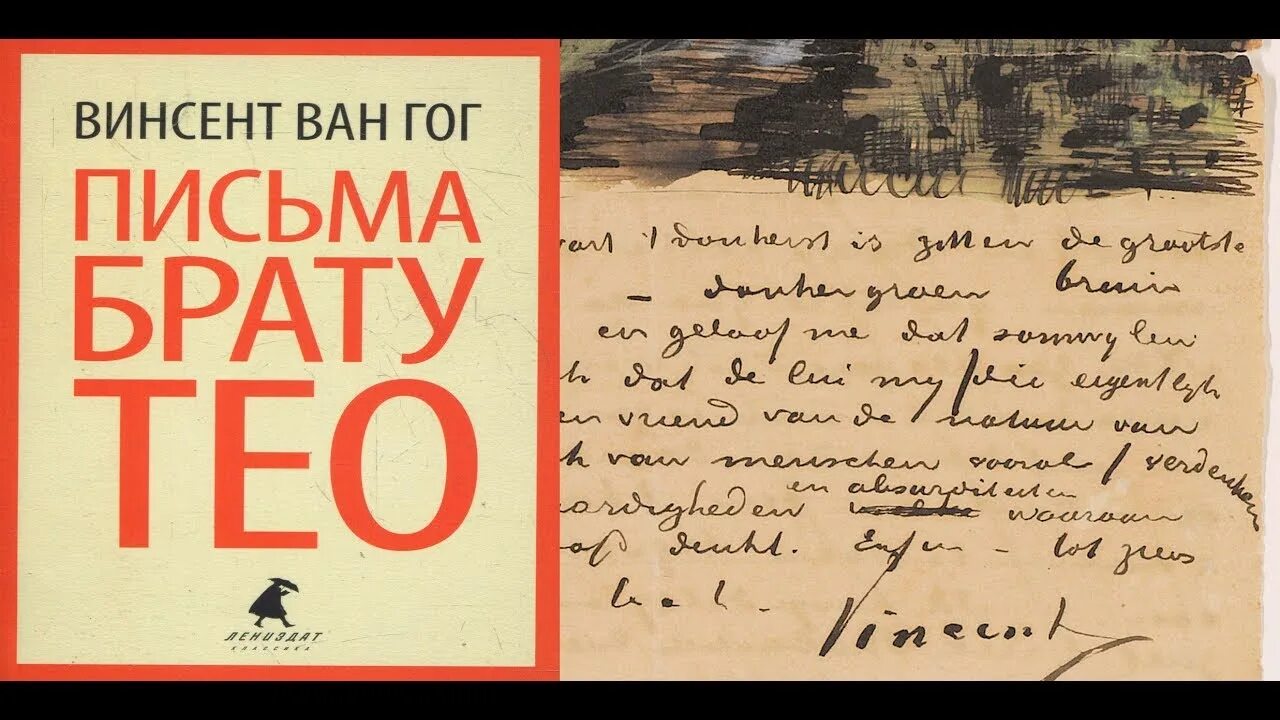 ВИНСЕНТ ВАН ГОГ
ПИСЬМА
БРАТУ
ТЕО
ЛЕНИЗДАТ
КЛАССИКА
't donkerst is zitten de grootste
– donkergroen bruin
en geloof me dat somwylen
dat de lui my / die eigentlyk
en vriend van de natuur van
van menschen vooral / verdenken
en absurditeiten
ardigheden waaraan
denkt. Enfin – tot ziens
Vincent